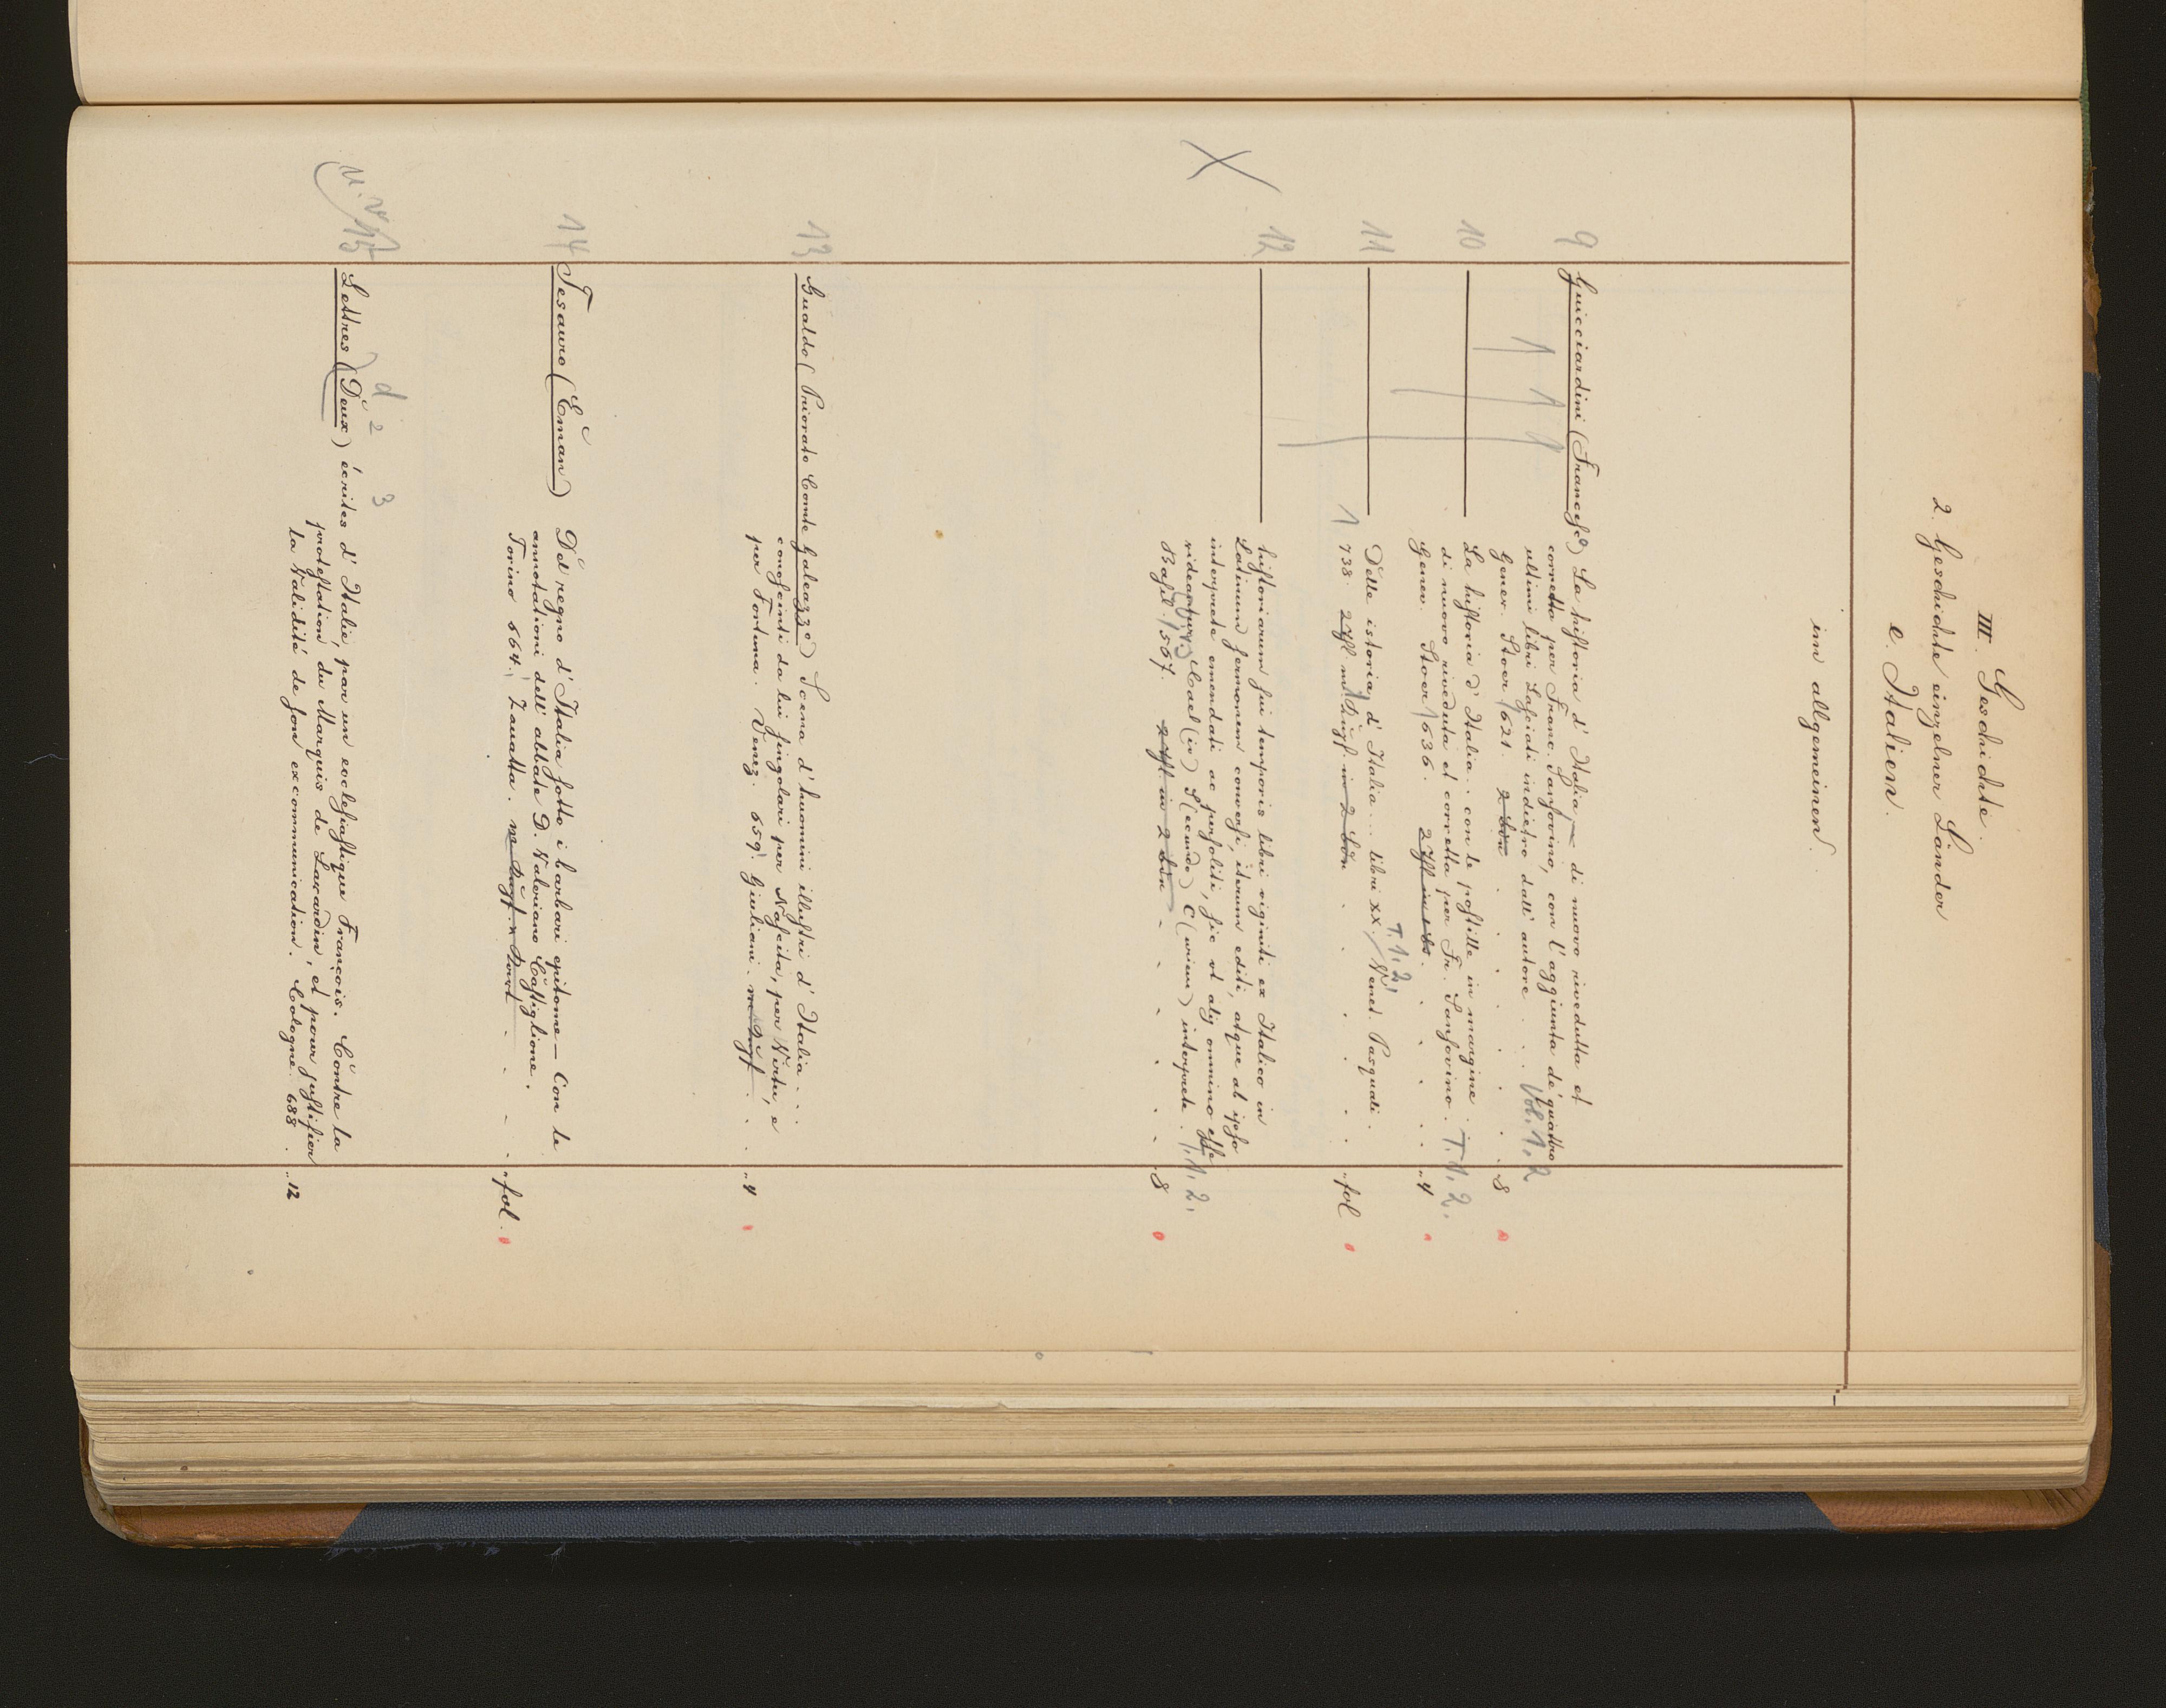 III. Geschichte.
2. Geschichte einzelner Länder
e. Italien.
im allgemeinen.
9 Guicciardini (Francesco) La historia d'Italia, — di nuovo riveduta et
corretta per Franc. Sansovino, con l'aggiunta de' quattro
ultimi libri Lasciati indietro dall' autore . . Vol. 1, 2
Genev. Stoer 1621. 2 Bde . . . . . . 8
10 ——— La historia d'Italia . con le postille in margine .
di nuovo riveduta et corretta per Fr. Sansovino . T. 1, 2.
Genev. Stoer 1636. . . . . 4
11 ——— Delle istoria d'Italia ... libri XX. T. 1, 2. Venet. Pasquali .
1738. in 2 Bdn . . . . . . fol
12 ——— historiarum sui temporis libri viginiti ex Italico in
Latinum sermonem conversi, iterum editi, atque ab ipso
interprete emendati ac perpoliti, sic vt alij omnino esse
videantur. Cael(io) S(ecundo) C(urione) interprete . T. 1, 2.
Basil. 1567. in 2 Bdn . . . . . . 8
13 Gualdo (Priorato Comte Galeazzo) Scena d'huomini illustri d'Italia . . .
conosciuti da lui singolari per Nascita, per Virtu, e
per Fortuna. Venez. 659. Giuliani. . . 4
14 Tesauro (Eman) Del regno d'Italia sotto i barbari epitome — Con le
annotationi dell' abbate D. Valeriano Castiglione .
Torino 664. Zauatta. . . . . fol.
d 2 3
15 Lettres (Deux) écrites d'Italie, par un ecclesiastique François. Contre la
protestation du Marquis de Lavardin, et pour justifier
la Validité de son excommunication. Cologne. 688 . . 12